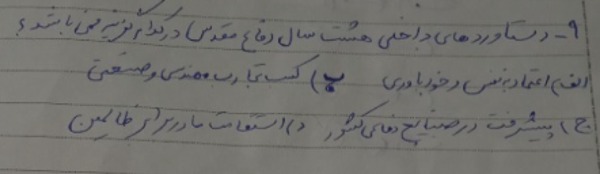 ۹- دستاوردهای داخلی هشت سال دفاع مقدس در کدام گزینه نمی باشد؟
الف) اعتماد بنفس و خودباوری ب) کسب تجارب مهندسی و صنعتی
ج) پیشرفت در صنایع دفاعی کشور د) استقامت ما در برابر ظالمین